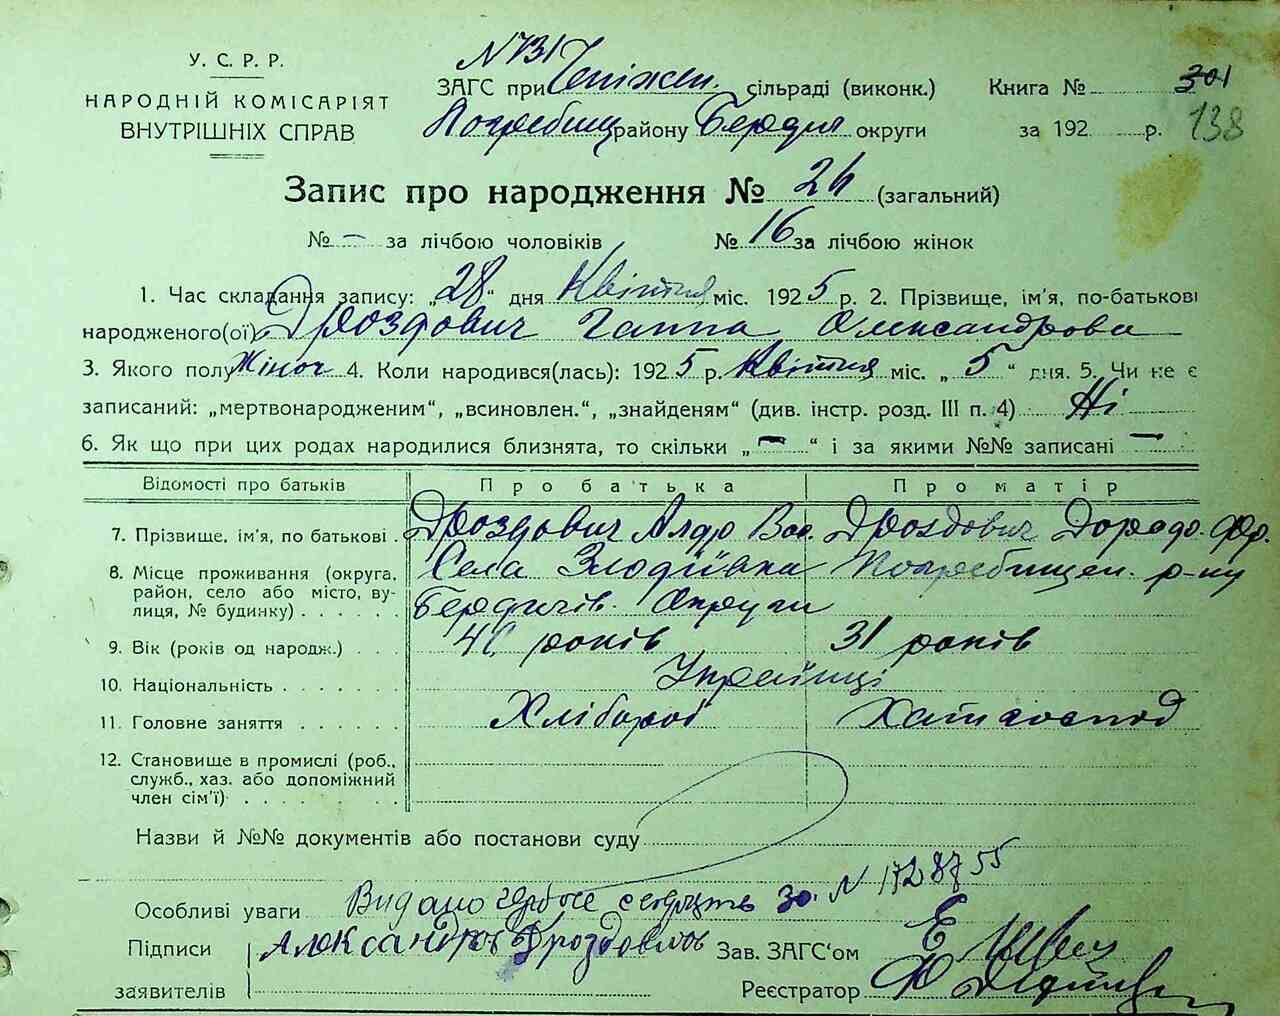 У. С. Р. Р.
НАРОДНІЙ КОМІСАРІЯТ
ВНУТРІШНІХ СПРАВ
N 731
ЗАГС при сільраді (виконк.)
Книга № 301
Погребищ району Бердич округи
за 192 р. 138
Запис про народження № 26 (загальний)
№ – за лічбою чоловіків № 16 за лічбою жінок
1. Час складання запису: „28“ дня Квітня міс. 1925 р. 2. Прізвище, ім'я, по-батькові
народженого(ої) Дроздович Ганна Олександрова
3. Якого полу Жіноч 4. Коли народився(лась): 1925 р. Квітня міс. „5“ дня. 5. Чи не є
записаний: „мертвонародженим“, „всиновлен.“, „знайденям“ (див. інстр. розд. III п. 4) Ні
6. Як що при цих родах народилися близнята, то скільки „–“ і за якими №№ записані –
Відомості про батьків Про батька Про матір
7. Прізвище, ім'я, по батькові Дроздович Алдр Вас. Дроздович
8. Місце проживання (округа, район, село або місто, вулиця, № будинку) Села Злодіївка Погребищен. р-ну
Бердичів. Округи
9. Вік (років од народж.) 40 років 31 років
10. Національність Українці
11. Головне заняття Хлібороб Хатн господ
12. Становище в промислі (роб.,
служб., хаз. або допоміжний
член сім'ї)
Назви й №№ документів або постанови суду
Особливі уваги Видано за N 1728755
Підписи Александров Дроздович Зав. ЗАГС'ом
заявителів Реєстратор